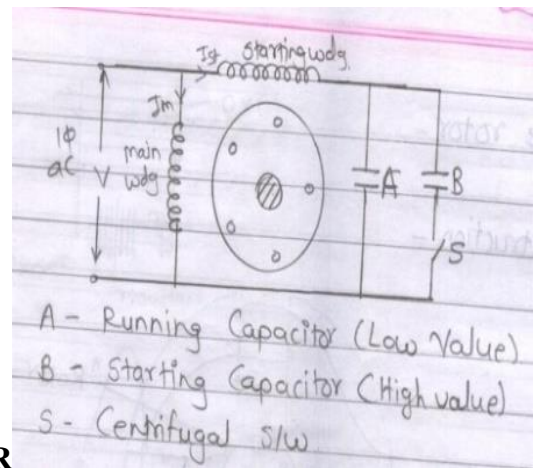 Is starting wdg.
Im
1φ
ac
V
main
wdg
A
B
S
A - Running Capacitor (Low Value)
B - Starting Capacitor (High value)
S - Centrifugal s/w
R